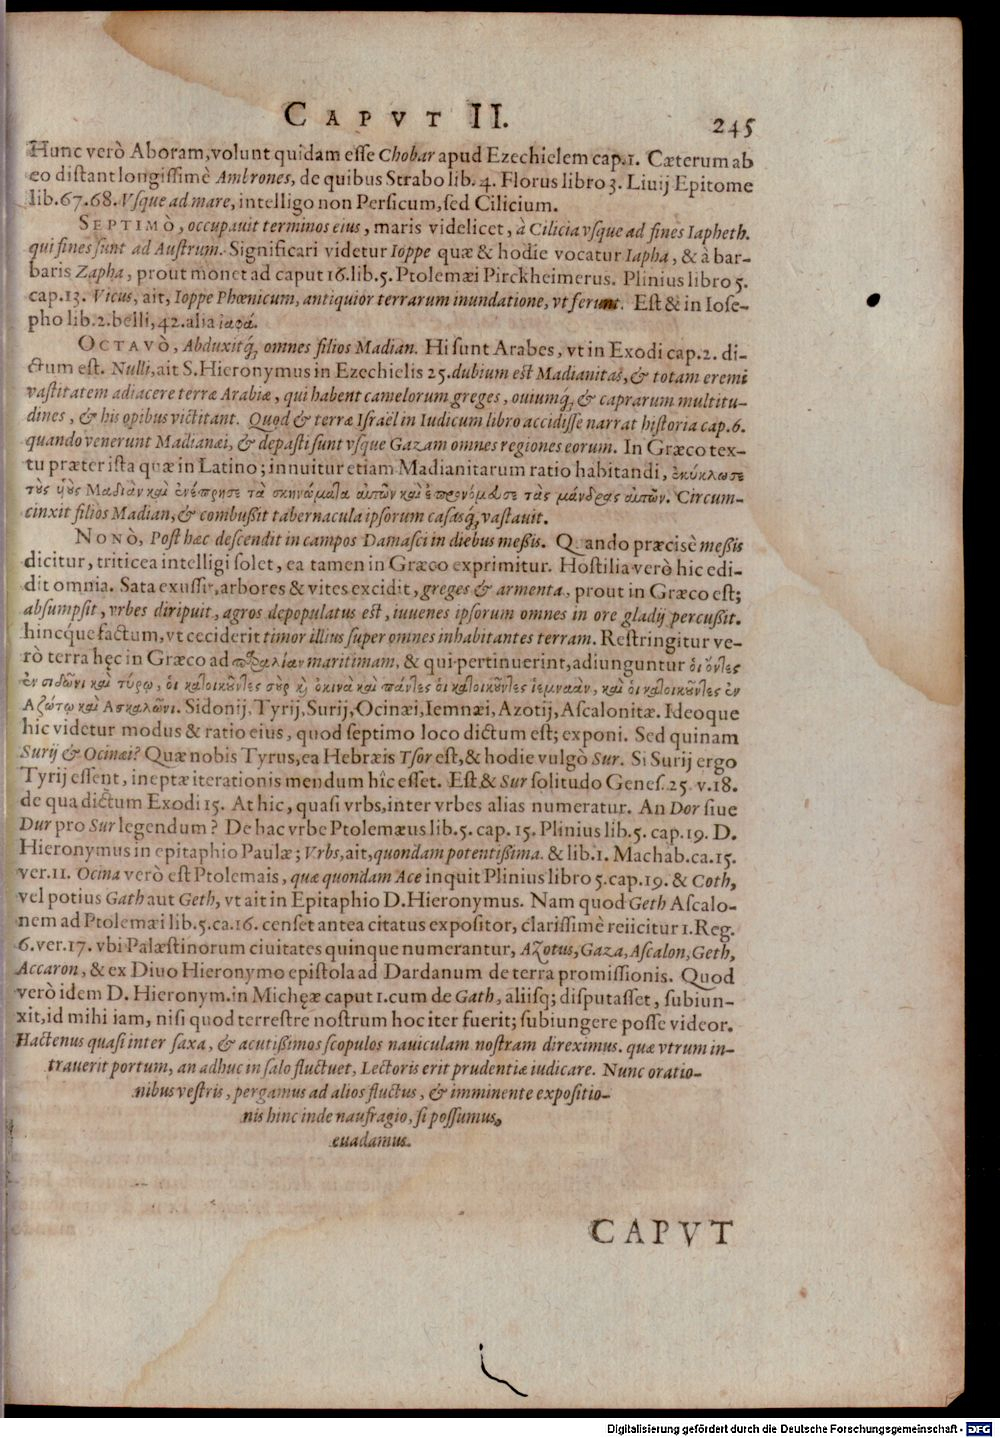 CAPVT II. 245
Hunc verò Aboram, volunt quidam esse Chobar apud Ezechielem cap.1. Cæterum ab
eo distant longissimè Ambrones, de quibus Strabo lib. 4. Florus libro 3. Liuij Epitome
lib.67.68. Vsque ad mare, intelligo non Persicum, sed Cilicium.
SEPTIMÒ, occupauit terminos eius, maris videlicet, à Cilicia vsque ad fines Iapheth.
qui fines sunt ad Austrum. Significari videtur Ioppe quæ & hodie vocatur Iapha, & à bar-
baris Zapha, prout monet ad caput 16.lib.5. Ptolemæi Pirckheimerus. Plinius libro 5.
cap.13. Vicus, ait, Ioppe Phœnicum, antiquior terrarum inundatione, vt ferunt. Est & in Iose-
pho lib.2.belli, 42.alia ἰαφά.
OCTAVÒ, Abduxitq́; omnes filios Madian. Hi sunt Arabes, vt in Exodi cap.2. di-
ctum est. Nulli, ait S.Hieronymus in Ezechielis 25.dubium est Madianitas, & totam eremi
vastitatem adiacere terræ Arabiæ, qui habent camelorum greges, ouiumq́; & caprarum multitu-
dines, & his opibus victitant. Quod & terræ Israël in Iudicum libro accidisse narrat historia cap.6.
quando venerunt Madianæi, & depasti sunt vsque Gazam omnes regiones eorum. In Græco tex-
tu præter ista quæ in Latino; innuitur etiam Madianitarum ratio habitandi, ἐκύκλωσε
τοὺς υἱοὺς Μαδιὰν καὶ ἐνέπρησε τὰ σκηνώματα αὐτῶν καὶ ἐπρονόμευσε τὰς μάνδρας αὐτῶν. Circum-
cinxit filios Madian, & combußit tabernacula ipsorum casasq́; vastauit.
NONÒ, Post hac descendit in campos Damasci in diebus meßis. Quando præcisè meßis
dicitur, triticea intelligi solet, ea tamen in Græco exprimitur. Hostilia verò hic edi-
dit omnia. Sata exussit, arbores & vites excidit, greges & armenta, prout in Græco est;
absumpsit, vrbes diripuit, agros depopulatus est, iuuenes ipsorum omnes in ore gladij percußit.
hincq́ue factum, vt ceciderit timor illius super omnes inhabitantes terram. Restringitur ve-
rò terra hęc in Græco ad παραλίαν maritimam, & qui pertinuerint, adiunguntur οἱ ὄντες
ἐν σιδῶνι καὶ τύρῳ, οἱ κατοικοῦντες σοὺρ καὶ ὀκινὰ καὶ πάντες οἱ κατοικοῦντες ἱεμναὰν, καὶ οἱ κατοικοῦντες ἐν
Ἀζώτῳ καὶ Ἀσκαλῶνι. Sidonij, Tyrij, Surij, Ocinæi, Iemnæi, Azotij, Ascalonitæ. Ideoque
hic videtur modus & ratio eius, quod septimo loco dictum est; exponi. Sed quinam
Surij & Ocinæi? Quæ nobis Tyrus, ea Hebræis Tsor est, & hodie vulgò Sur. Si Surij ergo
Tyrij essent, ineptæ iterationis mendum hîc esset. Est & Sur solitudo Genes.25. v.18.
de qua dictum Exodi 15. At hic, quasi vrbs, inter vrbes alias numeratur. An Dor siue
Dur pro Sur legendum? De hac vrbe Ptolemæus lib.5. cap. 15. Plinius lib.5. cap.19. D.
Hieronymus in epitaphio Paulæ; Vrbs, ait, quondam potentißima. & lib.1. Machab.ca.15.
ver.11. Ocina verò est Ptolemais, quæ quondam Ace inquit Plinius libro 5.cap.19. & Coth,
vel potius Gath aut Geth, vt ait in Epitaphio D.Hieronymus. Nam quod Geth Ascalo-
nem ad Ptolemæi lib.5.ca.16. censet antea citatus expositor, clarissimè reiicitur 1.Reg.
6.ver.17. vbi Palæstinorum ciuitates quinque numerantur, Azotus, Gaza, Ascalon, Geth,
Accaron, & ex Diuo Hieronymo epistola ad Dardanum de terra promissionis. Quod
verò idem D. Hieronym.in Michęæ caput 1.cum de Gath, aliisq; disputasset, subiun-
xit, id mihi iam, nisi quod terrestre nostrum hoc iter fuerit; subiungere posse videor.
Hactenus quasi inter saxa, & acutißimos scopulos nauiculam nostram direximus. quæ vtrum in-
trauerit portum, an adhuc in salo fluctuet, Lectoris erit prudentiæ iudicare. Nunc oratio-
nibus vestris, pergamus ad alios fluctus, & imminente expositio-
nis hinc inde naufragio, si possumus,
euadamus.
CAPVT
Digitalisierung gefördert durch die Deutsche Forschungsgemeinschaft - DFG